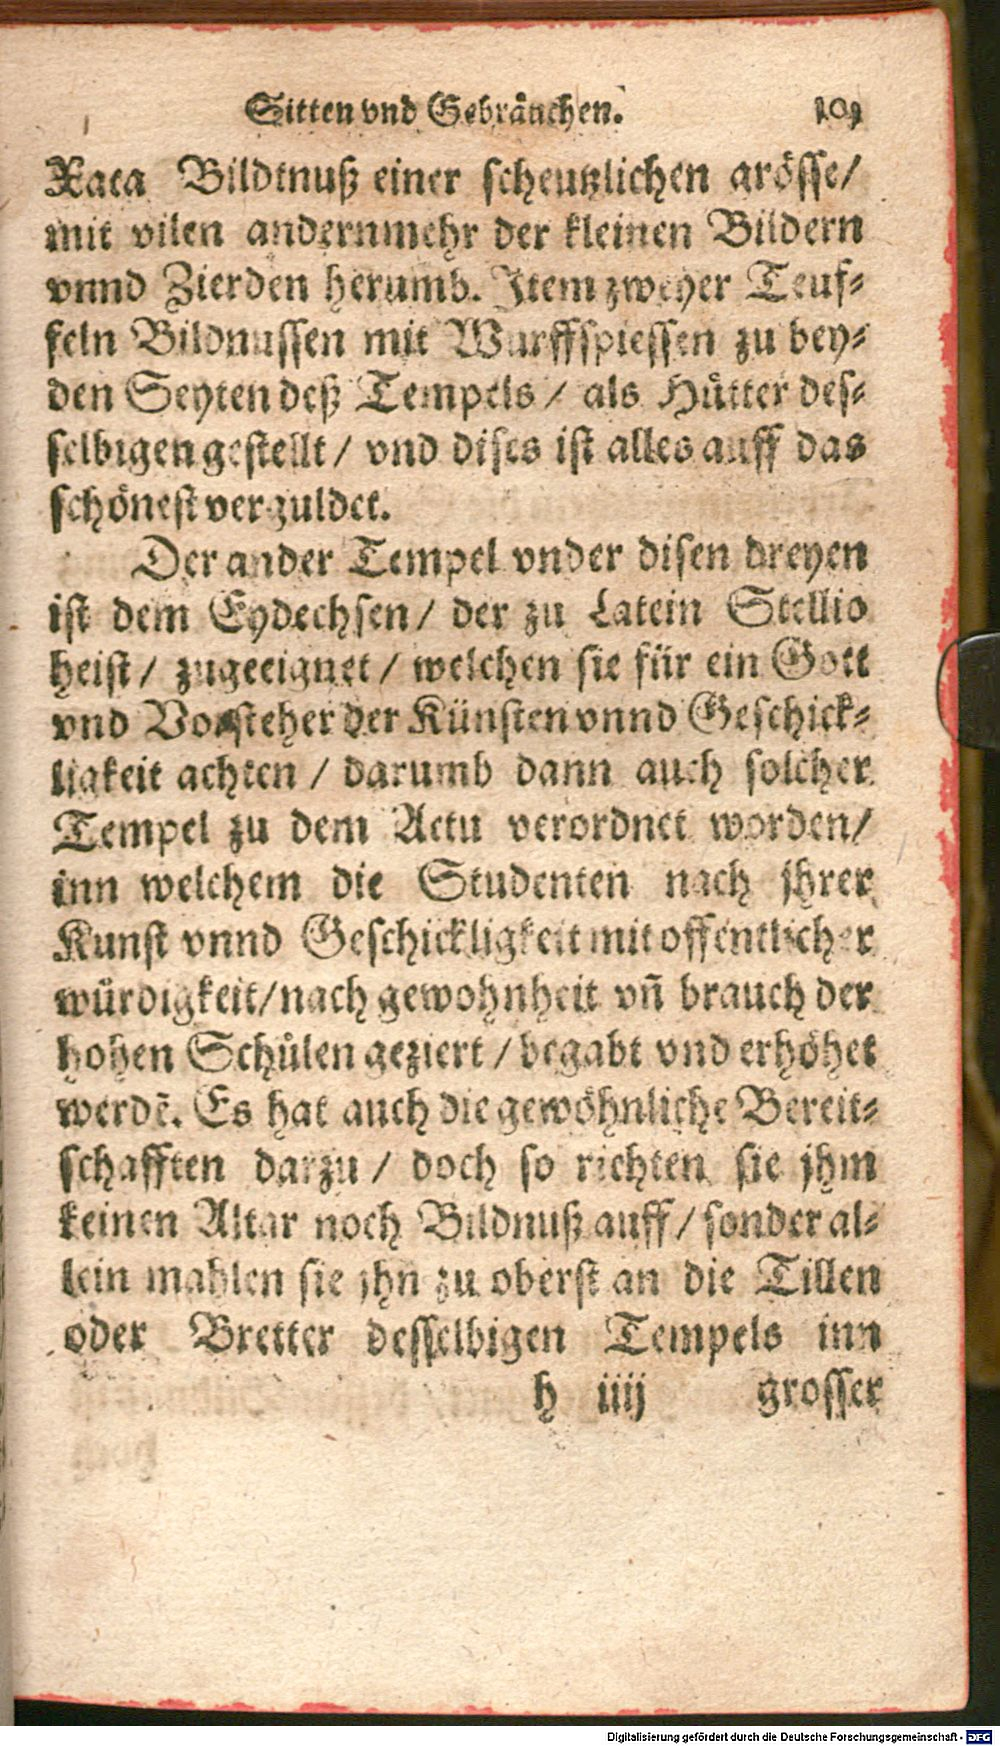 Sitten vnd Gebräuchen. 101
Xaca Bildtnuß einer scheutzlichen grösse/
mit vilen andernmehr der kleinen Bildern
vnnd Zierden herumb. Item zweyer Teuf-
feln Bildnussen mit Wurffspiessen zu bey-
den Seyten deß Tempels / als Hütter des-
selbigen gestellt / vnd dises ist alles auff das
schönest verzuldet.
Der ander Tempel vnder disen dreyen
ist dem Eydechsen / der zu Latein Stellio
heist / zugeeignet / welchen sie für ein Gott
vnd Vorsteher der Künsten vnnd Geschick-
ligkeit achten / darumb dann auch solcher
Tempel zu dem Actu verordnet worden/
inn welchem die Studenten nach jhrer
Kunst vnnd Geschickligkeit mit offentlicher
würdigkeit/nach gewohnheit vñ brauch der
hohen Schůlen geziert / begabt vnd erhöhet
werdẽ. Es hat auch die gewöhnliche Bereit-
schafften darzu / doch so richten sie jhm
keinen Altar noch Bildnuß auff / sonder al-
lein mahlen sie jhn zu oberst an die Tillen
oder Bretter desselbigen Tempels inn
h iiij grosser
Digitalisierung gefördert durch die Deutsche Forschungsgemeinschaft - DFG